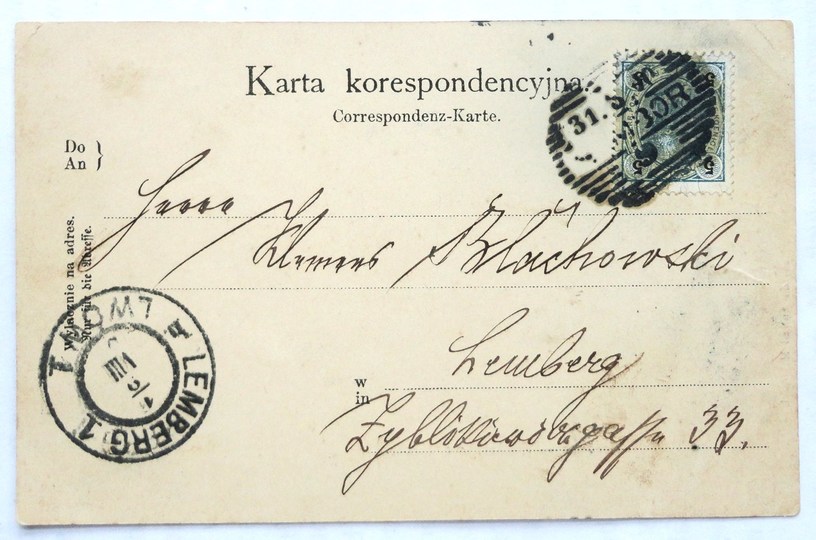 Karta korespondencyjna.
Correspondenz-Karte.
Do
An
Wyłącznie na adres.
Nur für die Adresse.
31.
5 5
5 5
Herrn
Klemens Blachowski
w
in
Lemberg
Zyblikiewiczgasse 33.
LWÓW 1
LEMBERG 1
VIII